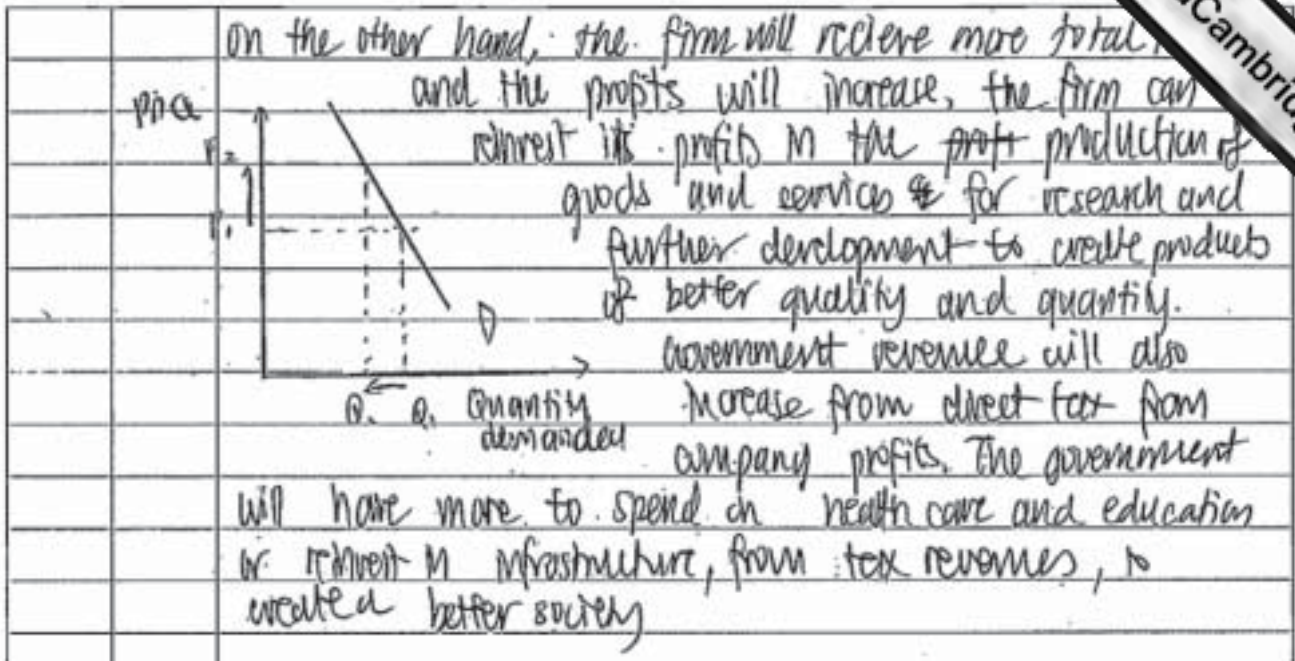 on the other hand, the firm will recieve more total
Cambri
and the profits will increase, the firm can
price
reinvest its profits in the proft production of
P₂
goods and services for research and
P₁
further development to create products
of better quality and quantity.
D
Government revenue will also
Q₂ Q₁ Quantity increase from direct tax from
demanded
company profits. The government
will have more to spend on health care and education
or reinvest in infrastructure, from tax revenues, to
create a better society